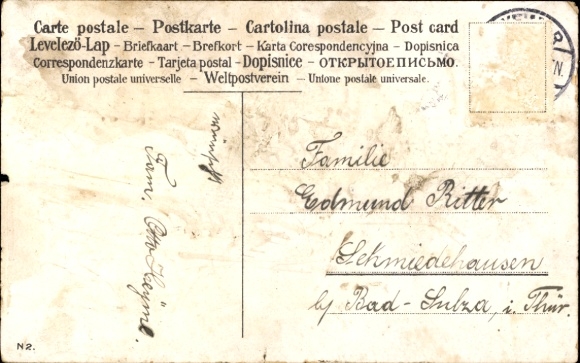 Carte postale – Postkarte – Cartolina postale – Post card
Levelező-Lap – Briefkaart – Brefkort – Karta Corespondencyjna – Dopisnica
Correspondenzkarte – Tarjeta postal – Dopisnice – ОТКРЫТОЕПИСЬМО.
Union postale universelle – Weltpostverein – Unione postale universale.
wünscht
Fam. Otto
Familie
Edmund Ritter
Schmiedehausen
b/ Bad-Sulza, i. Thür.
N 2.